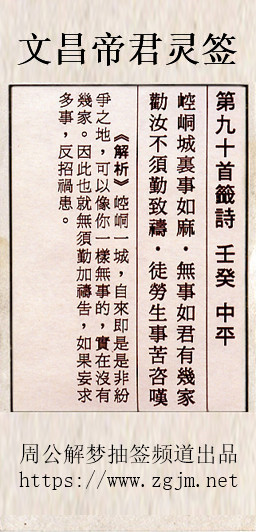 文昌帝君灵签
第九十首籤詩 壬癸 中平
崆峒城裏事如麻·無事如君有幾家
勸汝不須勤致禱·徒勞生事苦咨嘆
《解析》崆峒一城，自來即是是非紛
爭之地，可以像你一樣無事的，實在沒有
幾家。因此也就無須勤加禱告，如果妄求
多事，反招禍患。
周公解梦抽签频道出品
https://www.zgjm.net